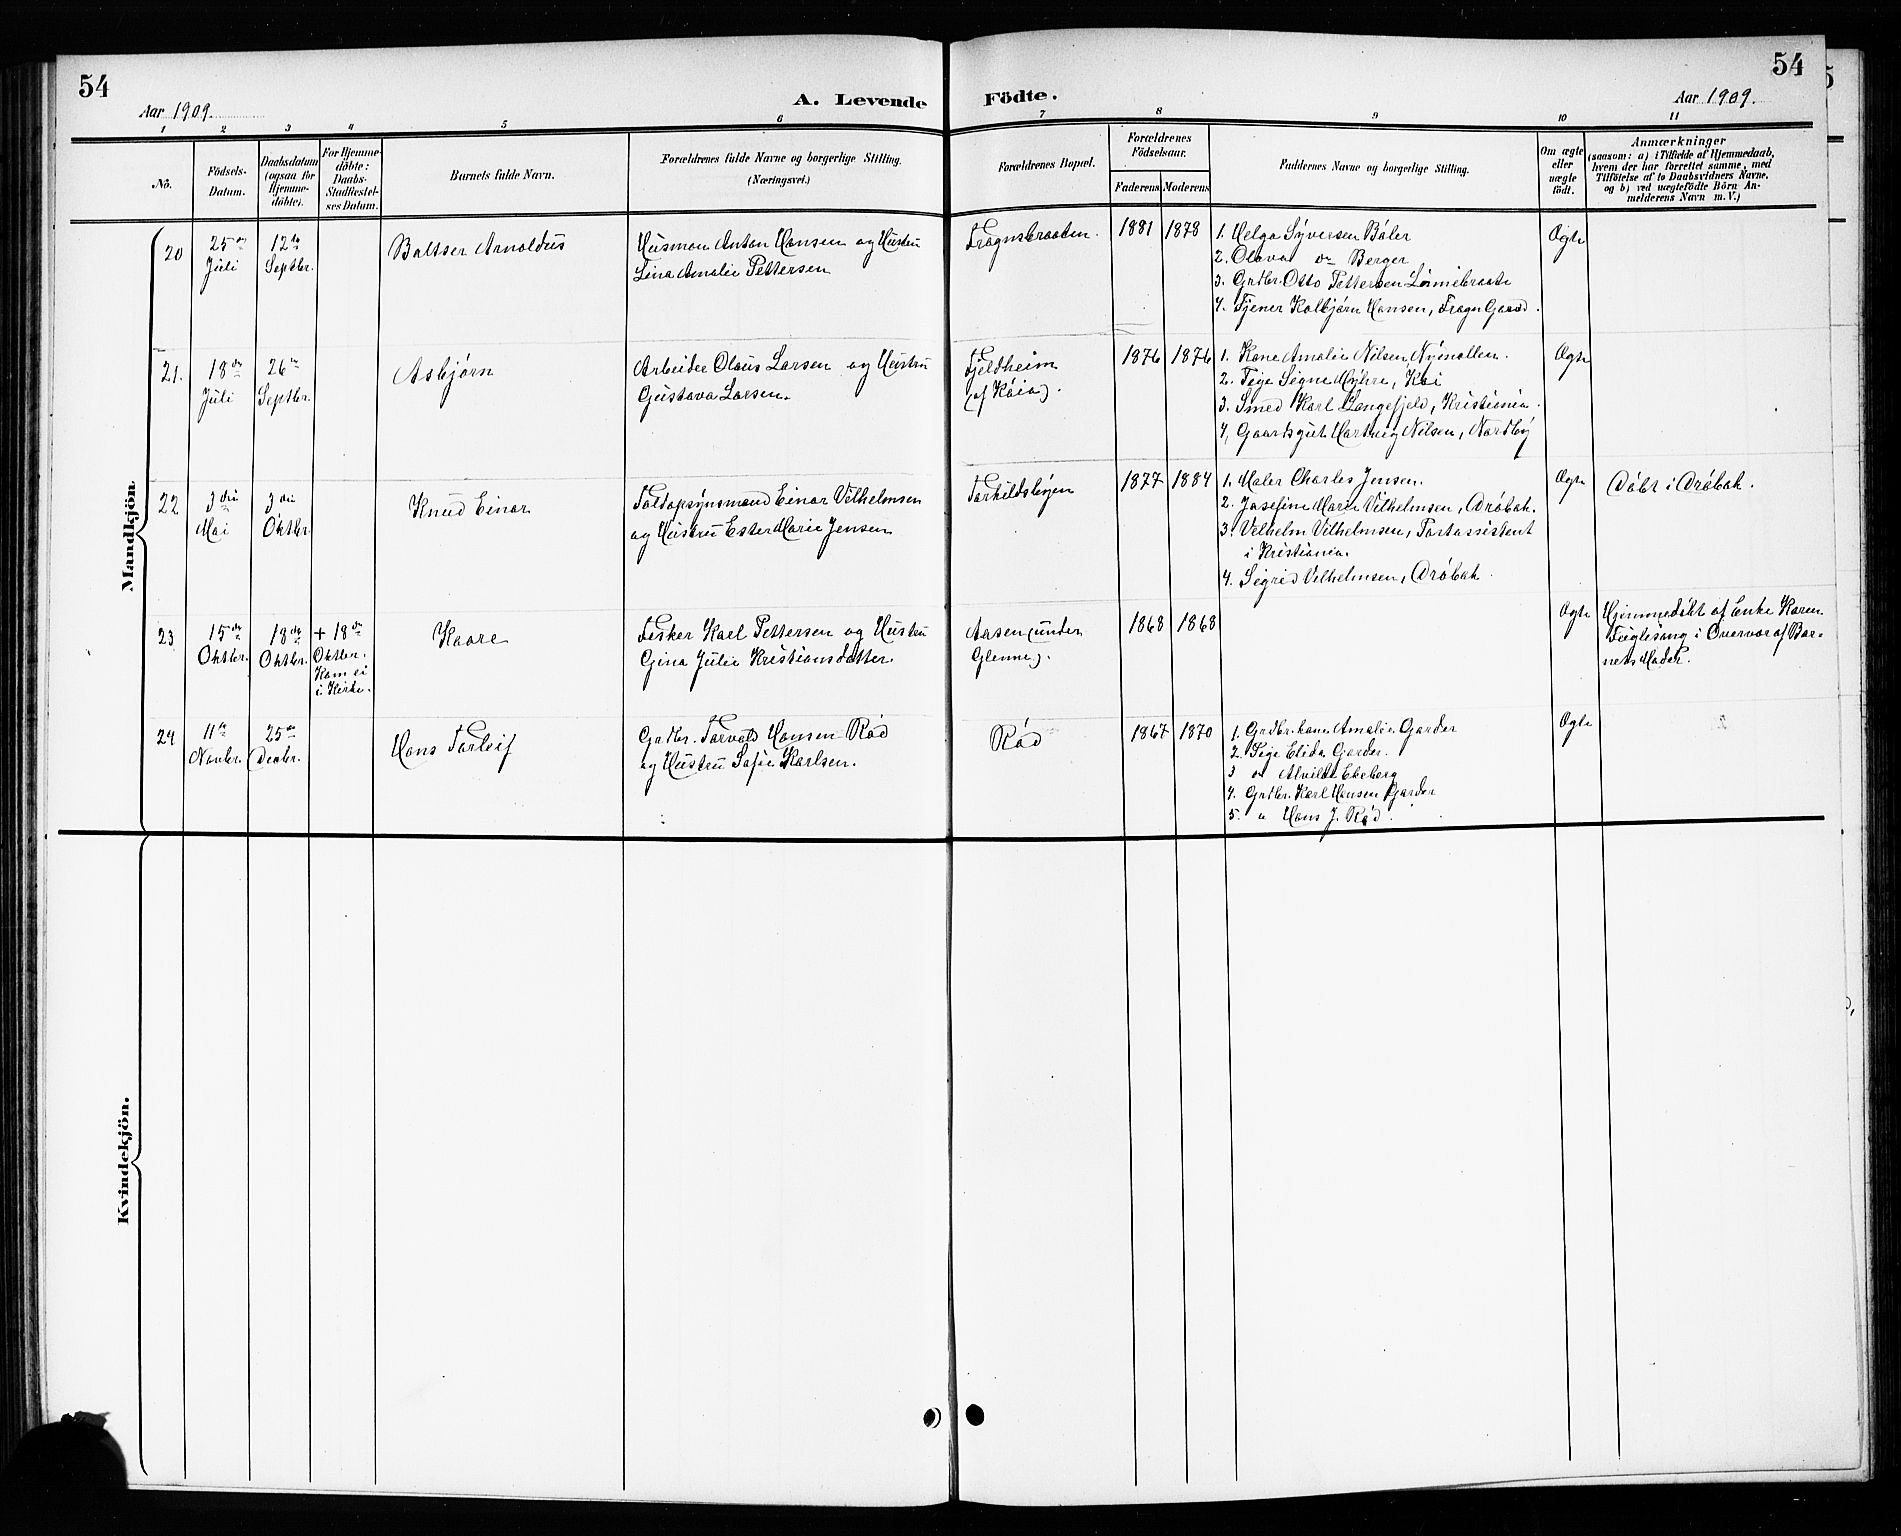 54
54
Aar 1909.
A. Levende Födte.
Aar 1909.
1 2 3 4 5 6 7 8 9 10 11
No.
Födsels-
Datum.
Daabsdatum
(ogsaa for
Hjemme-
döbte).
For Hjemme-
döbte:
Daabs-
Stadfæstel-
ses Datum.
Barnets fulde Navn.
Forældrenes fulde Navne og borgerlige Stilling.
(Næringsvei.)
Forældrenes Bopæl.
Forældrenes
Födselsaar.
Faderens Moderens
Faddernes Navne og borgerlige Stilling.
Om ægte
eller
uægte
födt.
Anmærkninger
(saasom: a) i Tilfælde af Hjemmedaab,
hvem der har forrettet samme, med
Tilföielse af to Daabsvidners Navne,
og b) ved uægtefödte Börn An-
melderens Navn m. V.)
Mandkjön.
20
25de
Juli
12te
Septbr.
Baltser Arnoldus
Husman Anton Hansen og Hustru
Lina Amalie Pettersen
Fragnsbraaten.
1881 1878
1. Helga Syversen Bøler
2. Olava do Berger
3. Grdbr. Otto Pettersen
4. Tjener Kolbjørn Hansen, Fragn Gaard.
Ægte
21.
18de
Juli
26de
Septbr.
Asbjørn
Arbeider Olaus Larsen og Hustru
Gustava Larsen.
Fjeldheim
(af Køia).
1876 1876
1. Kone Amalie Nilsen Nymollen.
2. Pige Signe Myhre,
3. Smed Karl Langefjeld, Kristiania.
4, Gaardsgut Hartvig Nilsen, Nordby
Ægte
22
3die
Mai
3die
Oktbr.
Knud Einar
Toldopsynsmand Einar Vilhelmsen
og Hustru Ester Marie Jensen
Torkildsbyen
1877 1884
1. Maler Charles Jensen.
2. Josefine Marie Vilhelmsen, Drøbak.
3. Vilhelm Vilhelmsen,
i Kristiania.
4. Sigrid Vilhelmsen, Drøbak.
Ægte
Døbt i Drøbak.
23
15de
Oktbr.
18de
Oktbr.
+ 18de
Oktbr.
Kom ei
i Kirke.
Kaare
Fisker Karl Pettersen og Hustru
Gina Julie Kristiansdatter.
Aasen (under
Glenne).
1868 1868
Ægte
Hjemmedøbt af Enke Karen
Fuglesang i Overvær af Bar-
nets Moder.
24
11te
Novbr.
25de
Decbr.
Hans Torleif
Grdbr. Torvald Hansen Rød
og Hustru Sofie Karlsen.
Rød
1867 1870
1. Grdbr.kone Amalie Garder
2. Pige Elida Garder.
3 do Alvilde Ekeberg
4. Grdbr. Karl Hansen Garder
5. " Hans J. Rød.
Ægte
Kvindekjön.